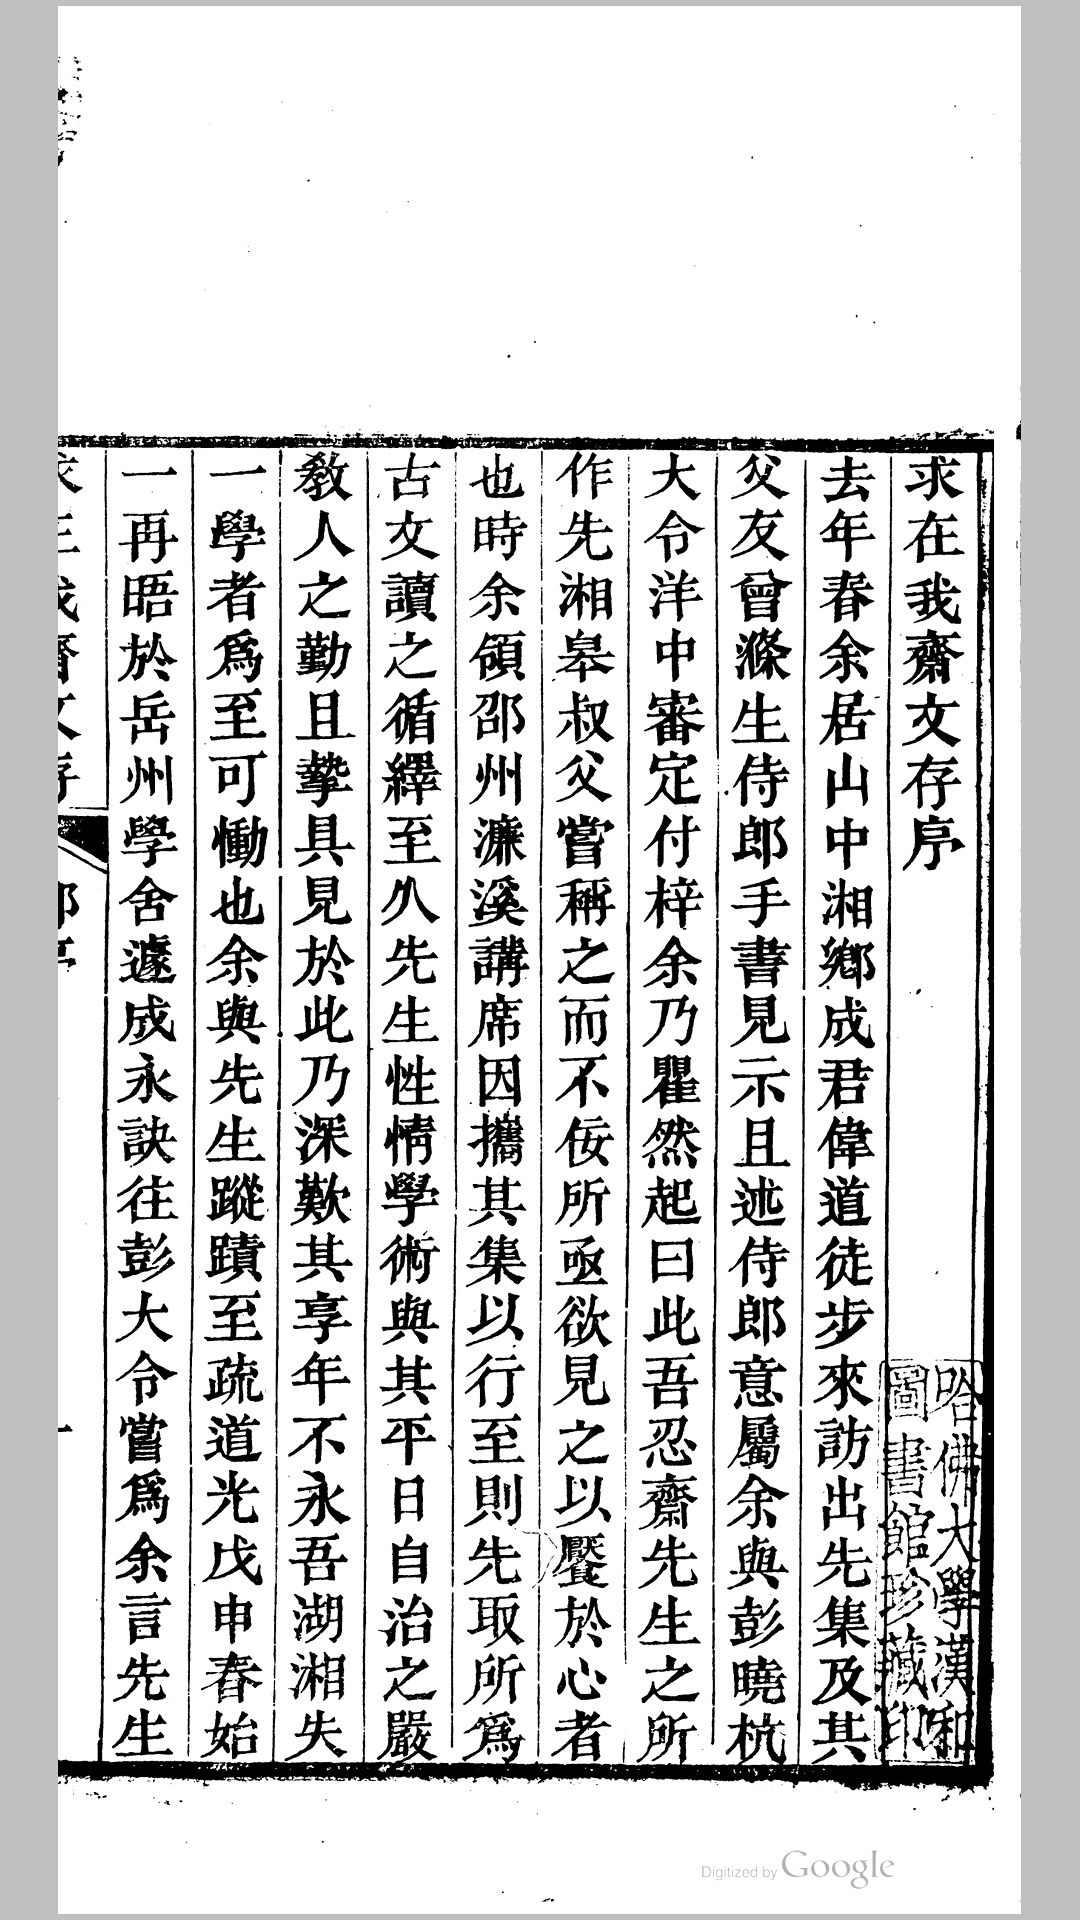 求在我齋文存序
去年春余居山中湘鄉成君偉道徒步來訪出先集及其
父友曾滌生侍郎手書見示且述侍郎意屬余與彭曉杭
大令洋中審定付梓余乃瞿然起曰此吾忍齋先生之所
作先湘皋叔父嘗稱之而不佞所亟欲見之以饜於心者
也時余領邵州濂溪講席因攜其集以行至則先取所爲
古文讀之循繹至久先生性情學術與其平日自治之嚴
教人之勤且摯具見於此乃深歎其享年不永吾湖湘失
一學者爲至可慟也余與先生蹤蹟至疏道光戊申春始
一再晤於岳州學舍遽成永訣往彭大令嘗爲余言先生
求在我齋文存
鄧序
一
哈佛大學漢和
圖書館珍藏印
Digitized by Google